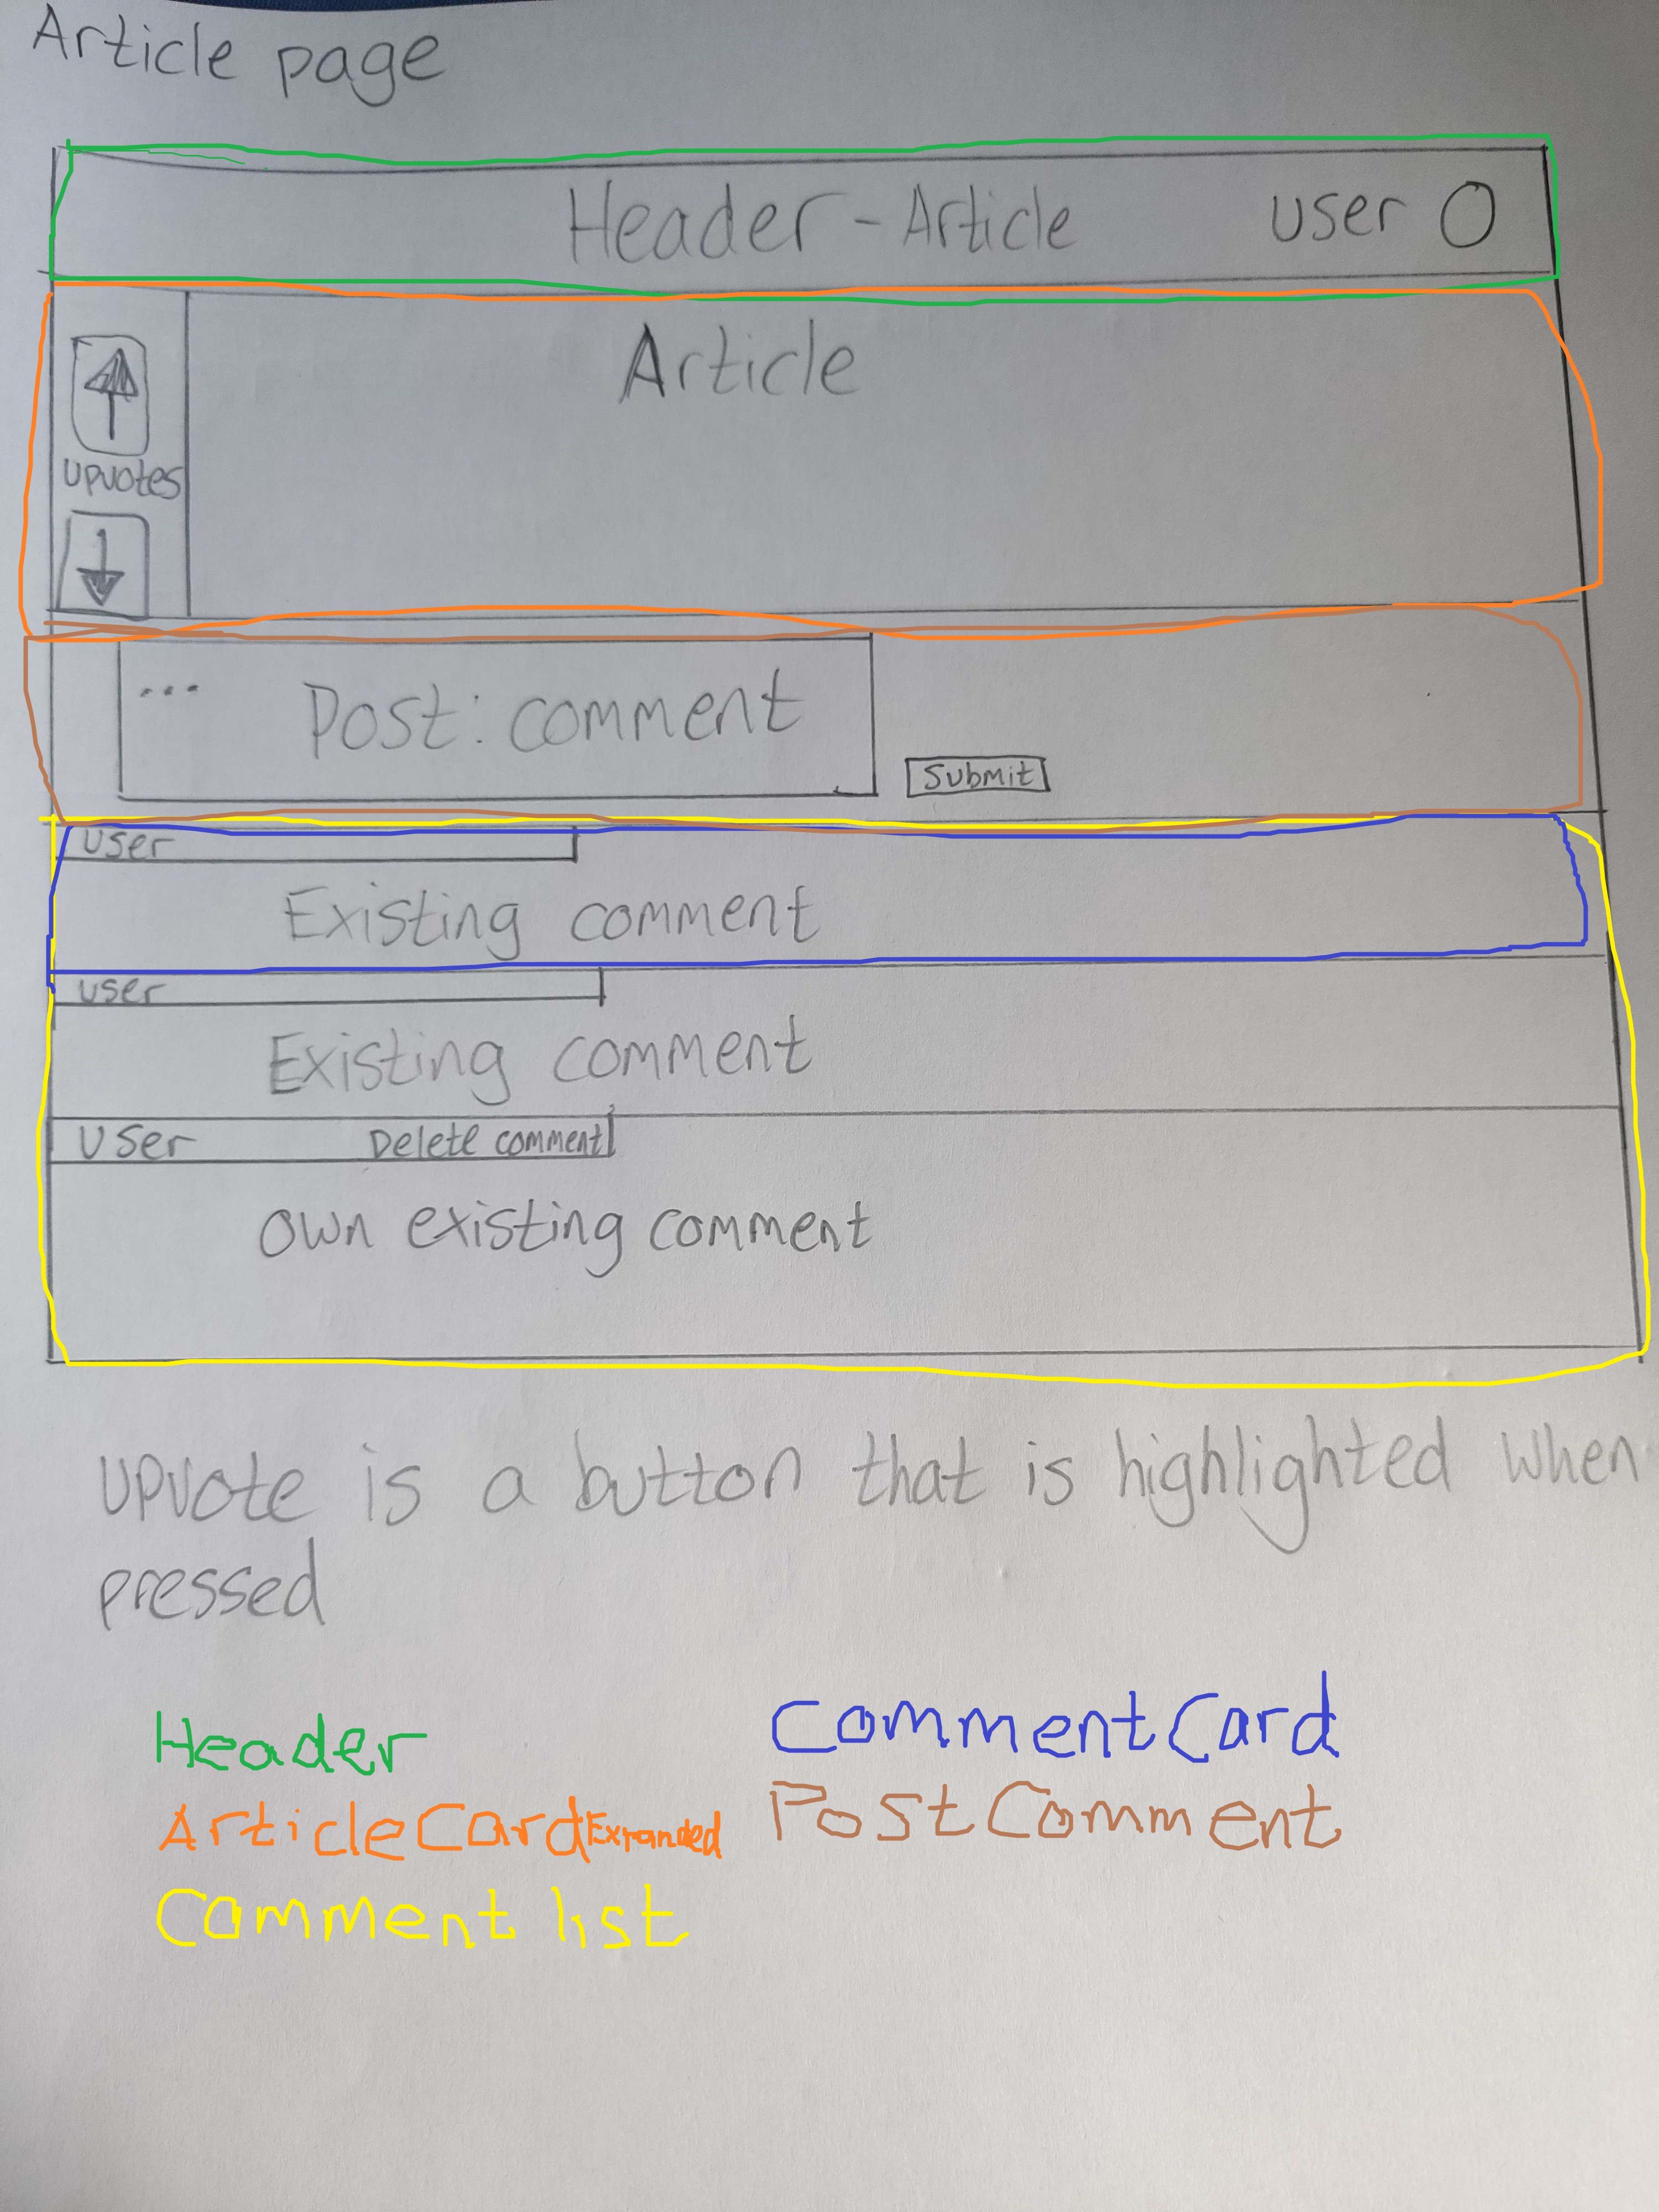 Article page
Header - Article user
Article
upvotes
... Post: comment
Submit
user
Existing comment
user
Existing comment
user Delete comment
own existing comment
upvote is a button that is highlighted when
pressed
Header
ArticleCardExpanded
Comment list
CommentCard
PostComment